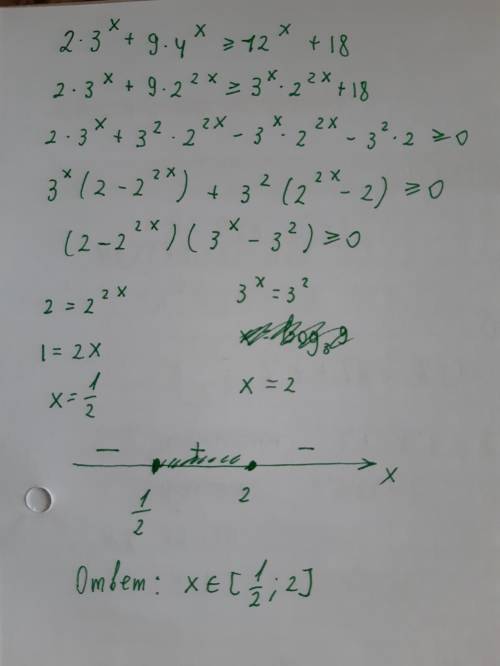 2·3^x + 9·4^x ≥ 12^x + 18
2·3^x + 9·2^{2x} ≥ 3^x·2^{2x} + 18
2·3^x + 3^2·2^{2x} − 3^x·2^{2x} − 3^2·2 ≥ 0
3^x (2 − 2^{2x}) + 3^2 (2^{2x} − 2) ≥ 0
(2 − 2^{2x}) (3^x − 3^2) ≥ 0
2 = 2^{2x}
1 = 2x
x = 1/2
3^x = 3^2
x = 2
− + −
1/2 2 x
Ответ: x ∈ [1/2; 2]